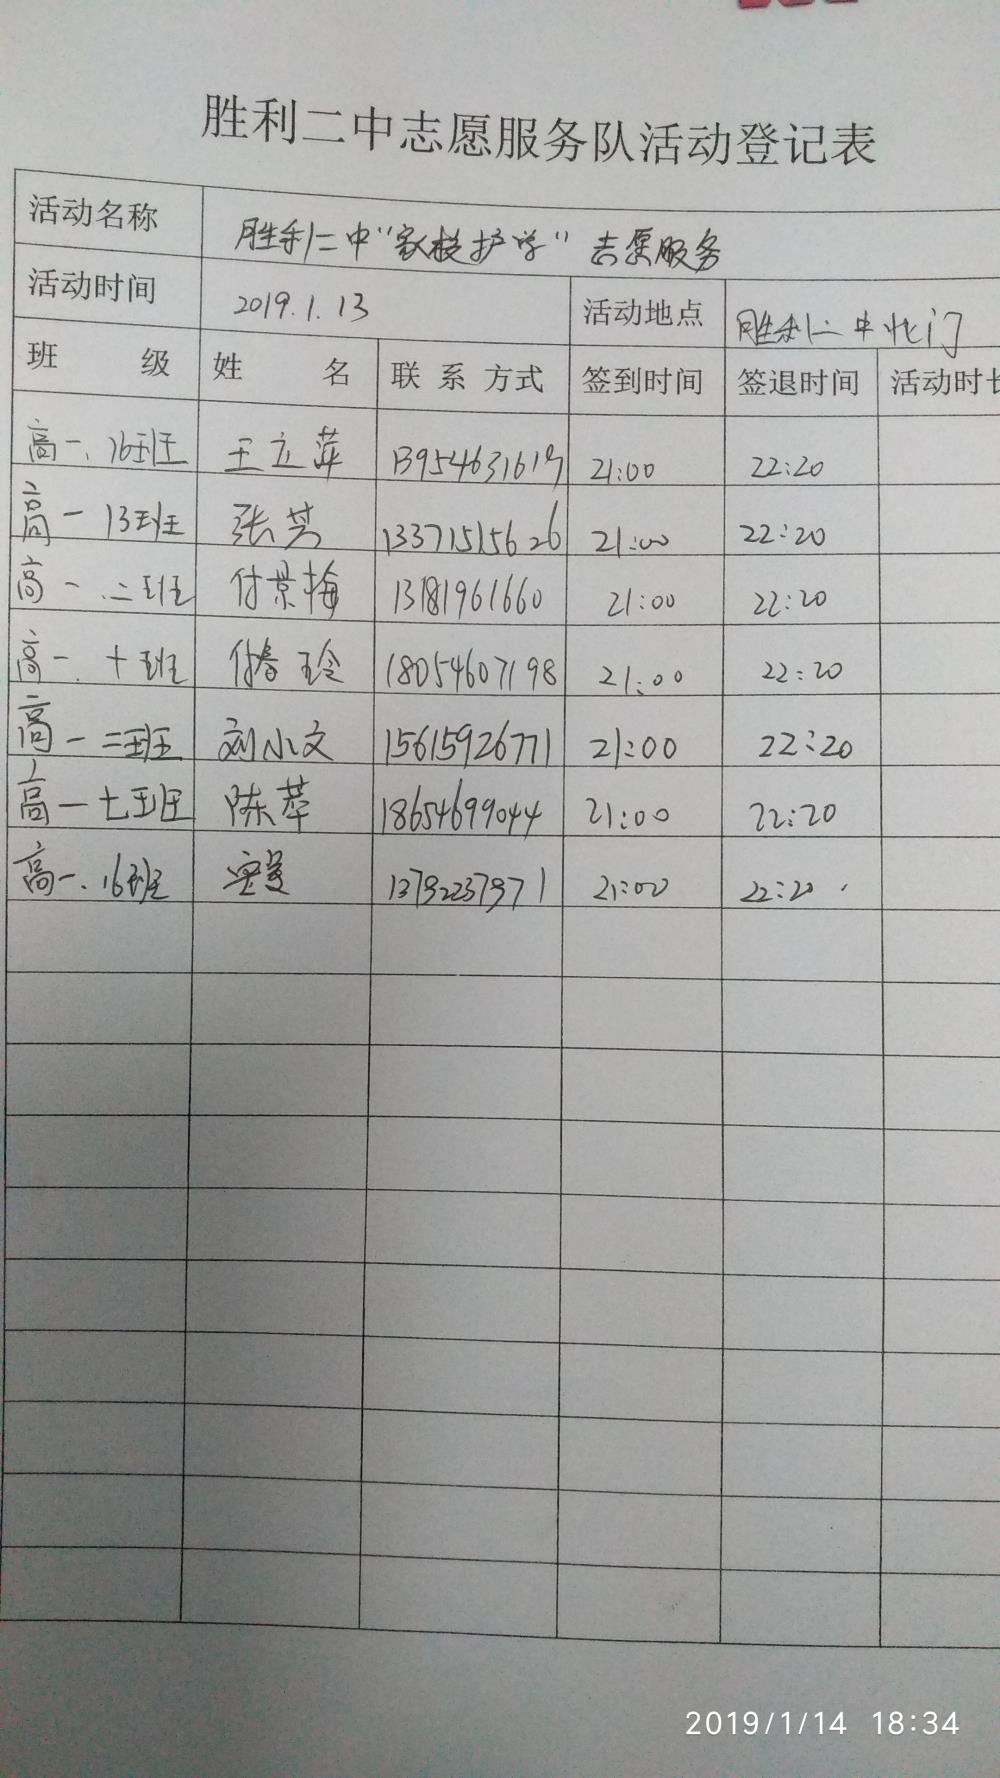 胜利二中志愿服务队活动登记表
活动名称 胜利二中“家校护学”志愿服务
活动时间 2019.1.13 活动地点 胜利二中北门
班 级 姓 名 联 系 方式 签到时间 签退时间 活动时长
高一.16班 王立萍 13954631617 21:00 22:20
高一 13班 张芳 13371515626 21:00 22:20
高一.二班 付景梅 13181961660 21:00 22:20
高一.十班 付春玲 18054607198 21:00 22:20
高一 二班 刘小文 15615926771 21:00 22:20
高一七班 陈苹 18654699044 21:00 22:20
高一.16班 21:00 22:20
2019/1/14 18:34